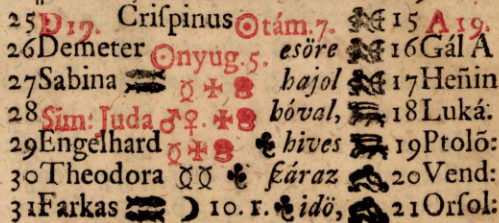 25 D 19. Criſpinus ☉ tám. 7. 15 A 19.
26 Demeter ☉ nyug. 5. esöre 16 Gál A
27 Sabina ☿ hajol 17 Heñin
28 Sim: Juda ♂ ♀ hóval, 18 Luká:
29 Engelhard ☿ ♣ hives 19 Ptolõ:
30 Theodora ☿☿ ♣ ſzáraz 20 Vend:
31 Farkas ☽ 10. r. ♣ idö, 21 Orſol: